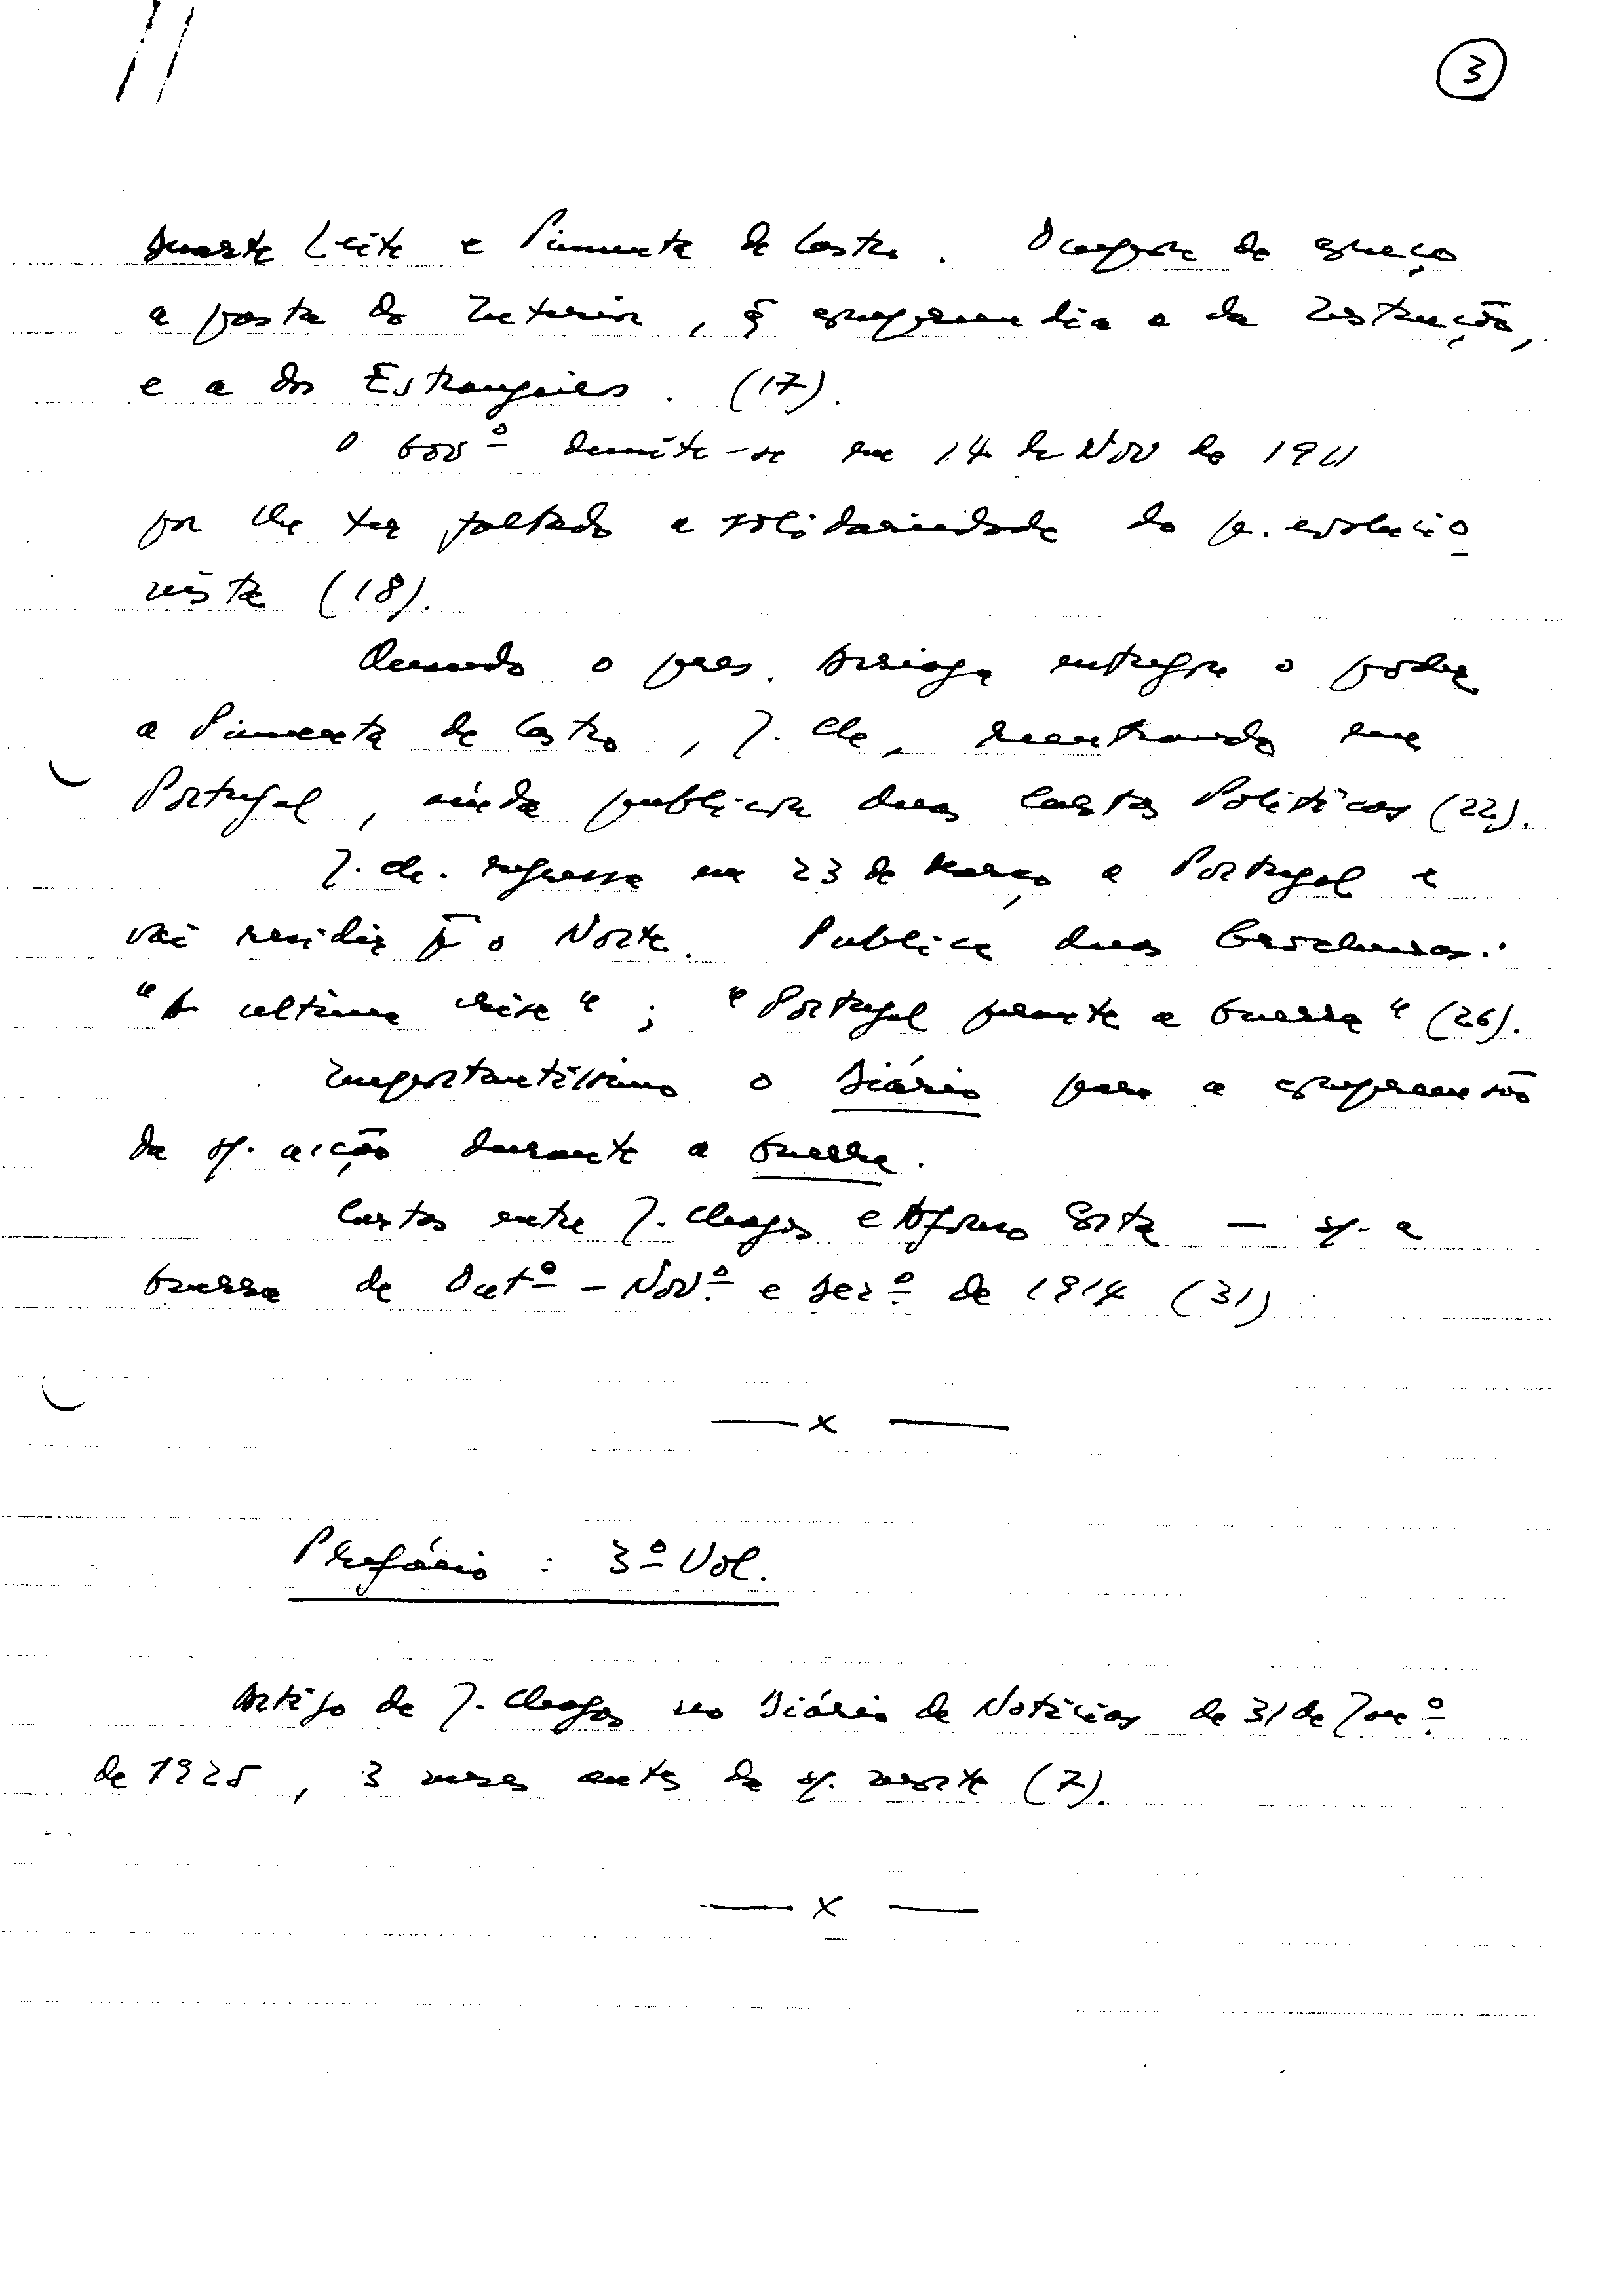 3
Duarte Leite e Pimenta de Castro. Ocupou de começo
a pasta do Interior, q̃ compreendia a da Instrução,
e a dos Estrangeiros. (17).
O Govº demite-se em 14 de Nov de 1911
por lhe ter faltado a solidariedade do p. evolucio
nista (18).
Quando o pres. Arriaga entregou o poder
a Pimenta de Castro, J. Ch., reentrando em
Portugal, ainda publicou duas Cartas Políticas (22).
J. Ch. regressa em 23 de Março a Portugal e
vai residir p̃ o Norte. Publica duas brochuras:
"A ultima crise"; "Portugal perante a Guerra" (26).
Importantíssimo o Diário para a compreensão
da sp. acção durante a Guerra.
Cartas entre J. Chagas e Afonso Costa — sp. a
Guerra de Outº - Nov.º e Dezº de 1914 (31)
— x —
Prefácio : 3º Vol.
Artigo de J. Chagas no Diário de Notícias de 31 de Janº
de 1925, 3 meses antes da sp. morte (7).
— x —